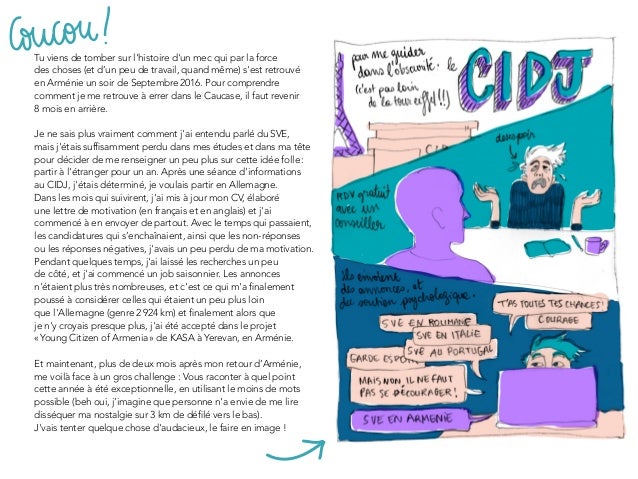 Coucou!
Tu viens de tomber sur l'histoire d'un mec qui par la force
des choses (et d'un peu de travail, quand même) s'est retrouvé
en Arménie un soir de Septembre 2016. Pour comprendre
comment je me retrouve à errer dans le Caucase, il faut revenir
8 mois en arrière.
Je ne sais plus vraiment comment j'ai entendu parlé du SVE,
mais j'étais suffisamment perdu dans mes études et dans ma tête
pour décider de me renseigner un peu plus sur cette idée folle :
partir à l'étranger pour un an. Après une séance d'informations
au CIDJ, j'étais déterminé, je voulais partir en Allemagne.
Dans les mois qui suivirent, j'ai mis à jour mon CV, élaboré
une lettre de motivation (en français et en anglais) et j'ai
commencé à en envoyer de partout. Avec le temps qui passaient,
les candidatures qui s'enchaînaient, ainsi que les non-réponses
ou les réponses négatives, j'avais un peu perdu de ma motivation.
Pendant quelques temps, j'ai laissé les recherches un peu
de côté, et j'ai commencé un job saisonnier. Les annonces
n'étaient plus très nombreuses, et c'est ce qui m'a finalement
poussé à considérer celles qui étaient un peu plus loin
que l'Allemagne (genre 2 924 km) et finalement alors que
je n'y croyais presque plus, j'ai été accepté dans le projet
« Young Citizen of Armenia » de KASA à Yerevan, en Arménie.
Et maintenant, plus de deux mois après mon retour d'Arménie,
me voilà face à un gros challenge : Vous raconter à quel point
cette année à été exceptionnelle, en utilisant le moins de mots
possible (beh oui, j'imagine que personne n'a envie de me lire
disséquer ma nostalgie sur 3 km de défilé vers le bas).
J'vais tenter quelque chose d'audacieux, le faire en image !
pour me guider
dans l'obscurité. le
CIDJ
(c'est pas loin
de la tour eiffel!!)
CID
desespoir
RDV gratuit
avec un
conseiller
ils envoient
des annonces, et
du soutien psychologique.
T'AS TOUTES TES CHANCES!
COURAGE
SVE EN ROUMANIE
SVE EN ITALIE
SVE AU PORTUGAL
GARDE ESPOIR
MAIS NON, IL NE FAUT
PAS SE DÉCOURAGER!
SVE EN ARMENIE